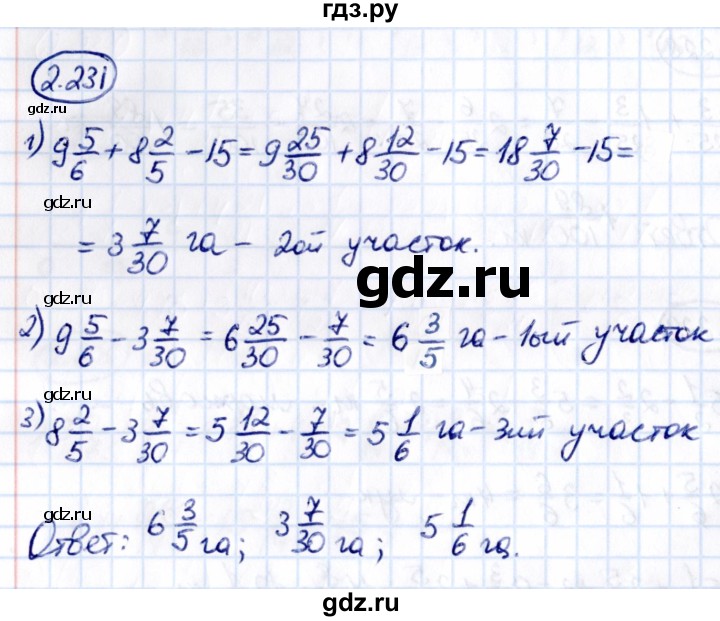 гдз.ру
2.231
gdz.ru
1) 9 5/6 + 8 2/5 - 15 = 9 25/30 + 8 12/30 - 15 = 18 7/30 - 15 =
gdz.ru
= 3 7/30 га - 2ой участок.
gdz.ru
gdz.ru
2) 9 5/6 - 3 7/30 = 6 25/30 - 7/30 = 6 3/5 га - 1ый участок
gdz.ru
3) 8 2/5 - 3 7/30 = 5 12/30 - 7/30 = 5 1/6 га - 3ий участок
gdz.ru
Ответ: 6 3/5 га; 3 7/30 га; 5 1/6 га.
gdz.ru